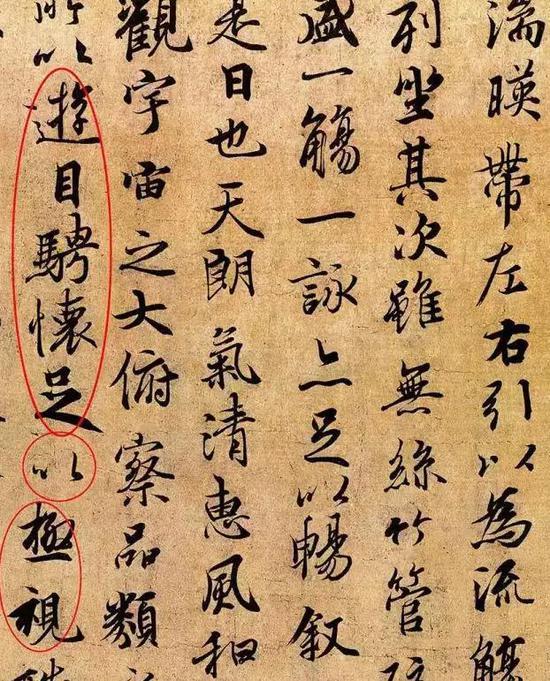 湍暎帶左右引以為流觴
列坐其次雖無絲竹管
盛一觴一詠亦足以暢叙
是日也天朗氣清惠風和
觀宇宙之大俯察品類
所以遊目騁懷足以極視